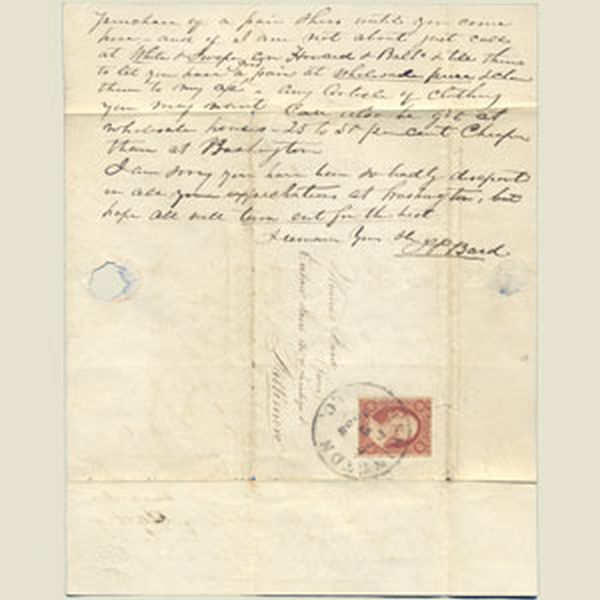 purchase of a pair Shoes until you come
here - and if I am not about just call
at White & Swope Cor Howard & Balto & tell them
to let you have a pair at wholesale price & charge
them to my a/c - Any article of clothing
you may want Can also be got at
wholesale houses - 25 to 50 per cent Cheaper
than at Washington
I am sorry you have been so badly disapoint
in all your expectations at Washington, but
hope all will turn out for the best
I remain Yours
Bard
Baltimore